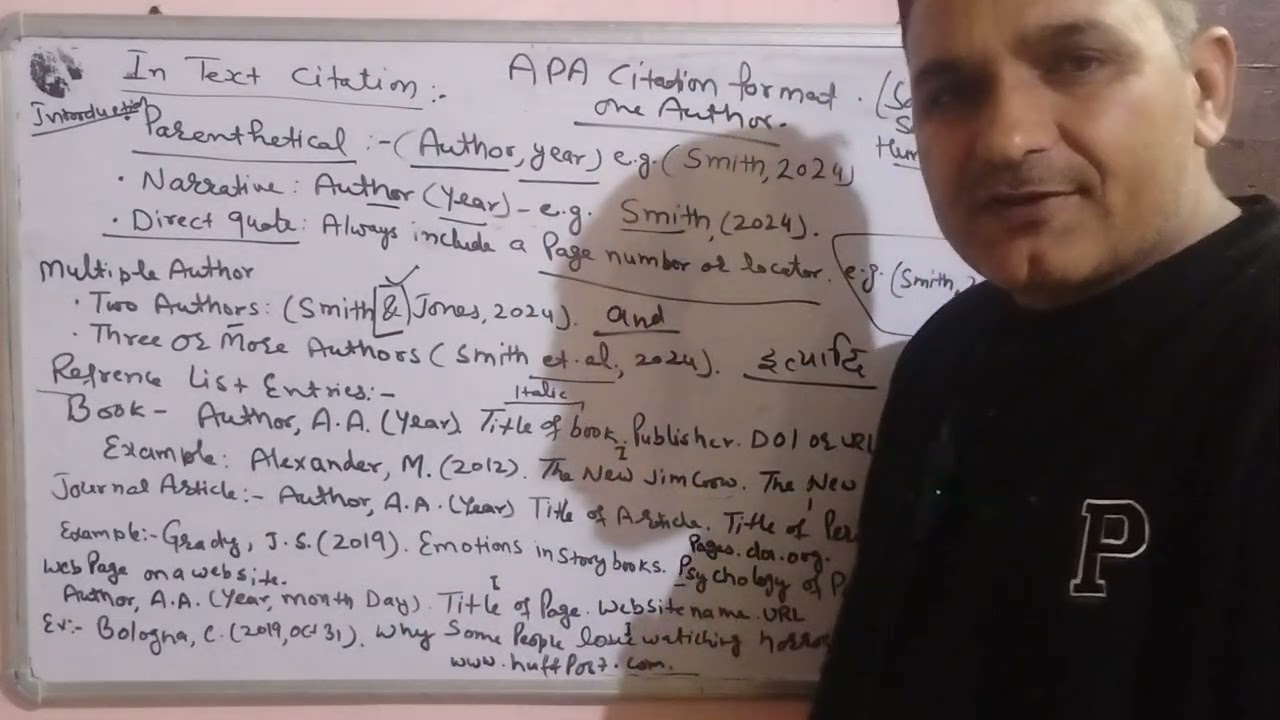 In Text Citation:-
APA Citation format.
one Author.
Introduction
Parenthetical :- (Author, year) e.g. (Smith, 2024)
· Narrative: Author (Year) - e.g. Smith, (2024).
· Direct quote: Always include a Page number or locator.
e.g. (Smith, 2
Multiple Author
· Two Authors: (Smith & Jones, 2024). and
· Three or More Authors (Smith et. al., 2024). इत्यादि
Refrence List Entries:-
Italic
Book - Author, A.A. (Year). Title of book. Publisher. DOI or URL
I
Example: Alexander, M. (2012). The New Jim Crow. The New
Journal Article:- Author, A.A. (Year) Title of Article. Title of Per
Pages. doi.org.
Example:- Grady, J.S. (2019). Emotions in Storybooks. Psychology of P
Web Page on a website.
I
Author, A.A. (Year, month Day). Title of Page. Website name. URL
I
Ex:- Bologna, C. (2019, Oct 31). Why Some People love watiching horror
www.huffPost.com.
P